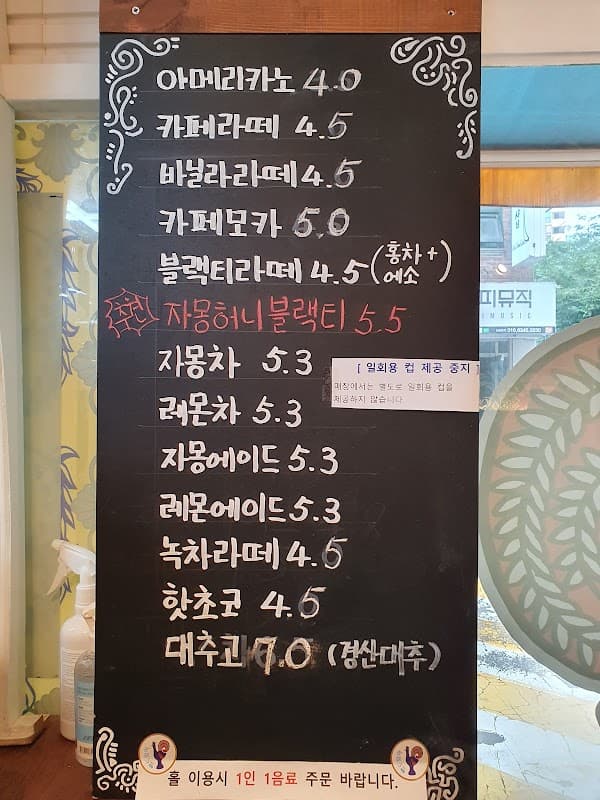 아메리카노 4.0
카페라떼 4.5
바닐라라떼 4.5
카페모카 5.0
블랙티라떼 4.5 (홍차+에소)
추천 자몽허니블랙티 5.5
자몽차 5.3
[ 일회용 컵 제공 중지 ]
매장에서는 별도로 일회용 컵을
제공하지 않습니다.
레몬차 5.3
자몽에이드 5.3
레몬에이드 5.3
녹차라떼 4.5
핫초코 4.5
대추고 7.0 (경산대추)
홀 이용시 1인 1음료 주문 바랍니다.
피뮤직
MUSIC